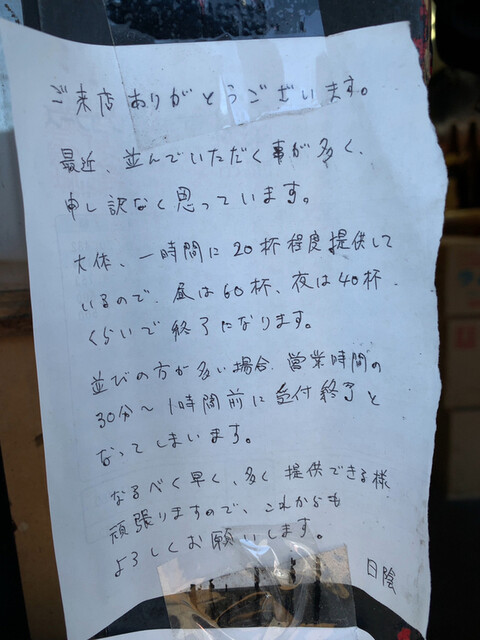 ご来店ありがとうございます。
最近、並んでいただく事が多く、
申し訳なく思っています。
大体、一時間に20杯程度提供して
いるので、昼は60杯、夜は40杯
くらいで終了になります。
並びの方が多い場合、営業時間の
30分〜1時間前に受付終了と
なってしまいます。
なるべく早く、多く提供できる様、
頑張りますので、これからも
よろしくお願いします。
日陰